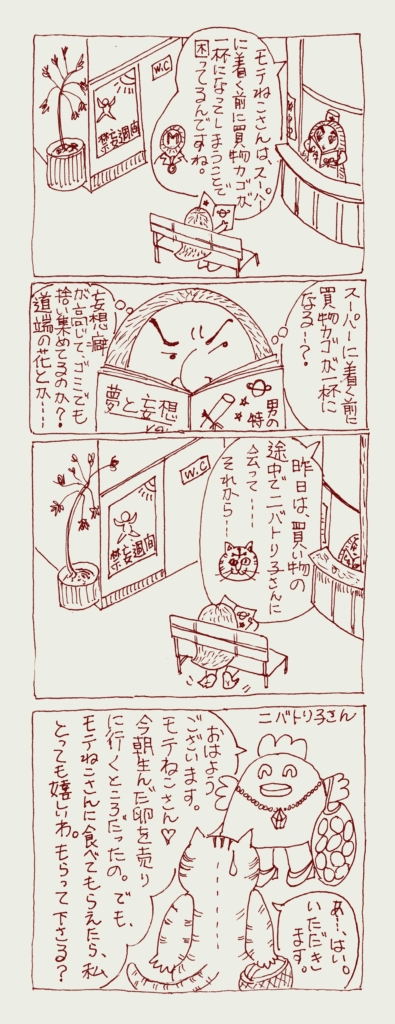 モテねこさんは、スーパー
に着く前に買物カゴが
一杯になってしまうことで
困ってるんですね。
M
W.C
禁妄週間
スーパーに着く前に
買物カゴが一杯に
なる…?
男の
特
夢と妄想
妄想癖
が高じて、ゴミでも
拾い集めてるのか?
道端の花とか……
昨日は、買い物の
途中でニバトリ子さんに
会って……
それから……
W.C
禁妄週間
ニバトリ子さん
おはよう
ございます。
モテねこさん♡
今朝生んだ卵を売り
に行くところだったの。でも、
モテねこさんに食べてもらえたら、私
とっても嬉しいわ。もらって下さる?
あ…、はい。
いただき
ます。